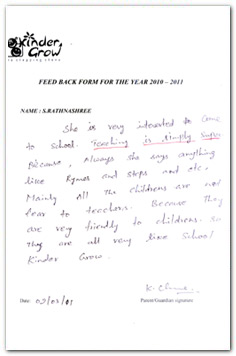 Kinder
Grow
FEED BACK FORM FOR THE YEAR 2010 – 2011
NAME : S.RATHNASHREE
She is very intersted to Come
to School. Teaching is simply Super
Because, Always she says anything
like Rymes and steps and etc.
Mainly all the childrens are not
fear to teachers. Because they
are very friendly to childrens. So
they are all very like School
Kinder Grow.
Date:
Parent/Guardian signature